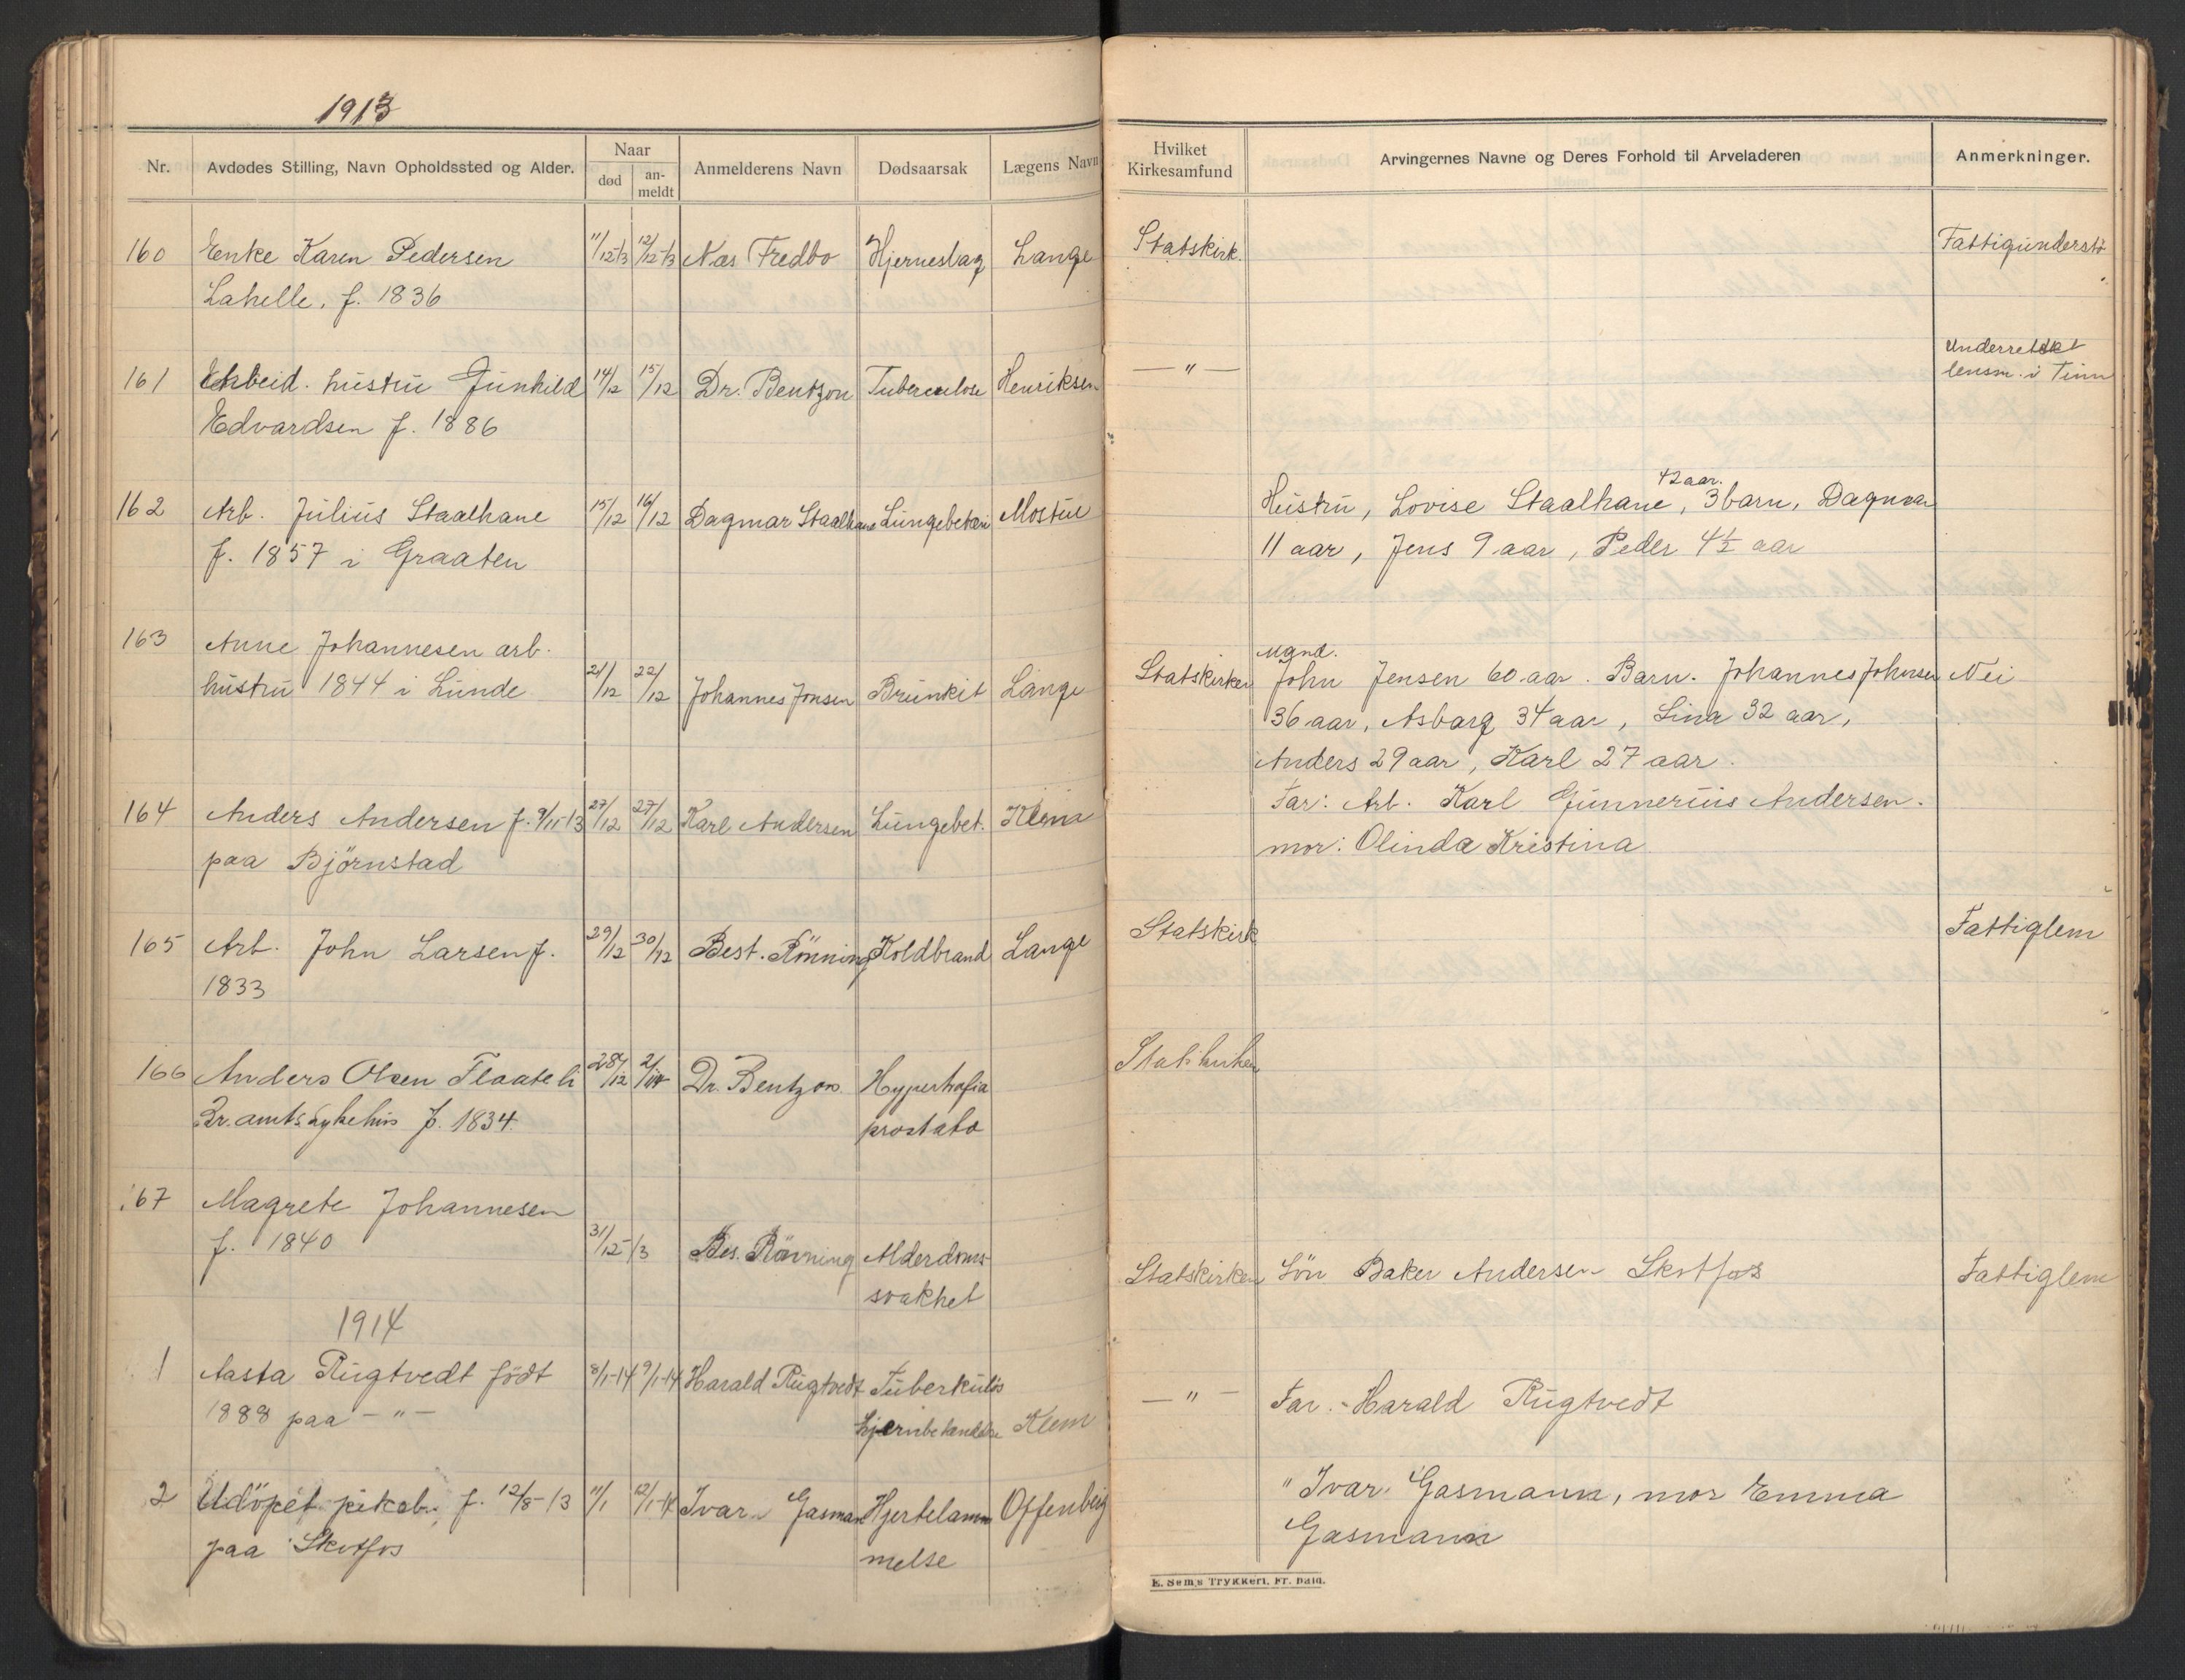 1913
Nr. Avdødes Stilling, Navn Opholdssted og Alder. Naar død an-meldt Anmelderens Navn Dødsaarsak Lægens Navn
Hvilket Kirkesamfund Arvingernes Navne og Deres Forhold til Arveladeren Anmerkninger.
160 Enke Karen Pedersen 11/12-13 12/12-13 Nas Fredbo Hjerneslag Lange Statskirk. Fattigunderst
Lahelle. f. 1836
161 Arbeid. hustru Gunhild 14/12 15/12 Dr. Bentzon Tuberculose Henriksen — " — Underrettet
lensm. i Tinn
Edvardsen f. 1886
162 Arb. Julius Staalhane 15/12 16/12 Dagmar Staalhane Lungebetæn Mostue Hustru, Lovise Staalhane, 42 aar. 3 barn, Dagmar
f. 1857 i Graaten 11 aar, Jens 9 aar, Peder 4½ aar
163 Anne Johannesen arb.
hustru 1844 i Lunde 21/12 22/12 Johannes Jonsen Brunkit Lange Statskirken Mand. John Jensen 60 aar. Barn. Johannes Johnsen Nei
36 aar, Asbarg 34 aar, Lina 32 aar,
Anders 29 aar, Karl 27 aar.
164 Anders Andersen f. 9/11-13 27/12 27/12 Karl Andersen Lungebet. Klem Far: Arb. Karl Gunnerius Andersen.
paa Björnstad mor: Olinda Kristina
165 Arb. John Larsen f. 29/12 30/12 Best. Rönning Koldbrand Lange Statskirk Fattiglem
1833
166 Anders Olsen Flaateli 28/12 2/1 14 Dr. Bentzon. Hypertrofia Statskirken
Br. amts sykehus f. 1834. prostata
167 Magrete Johannesen
f. 1840 31/12-13 Bes. Rönning Alderdoms- Statskirken Sön Baker Andersen Skotfos Fattiglem
svakhet
1914
1 Aasta Rugtvedt födt 8/1-14 9/1-14 Harald Rugtvedt Tuberkulös — " — Far. - Harald Rugtvedt
1888 paa — " — hjernbetændelse Klem
2 Udöpet pikebn. f. 12/8-13 11/1 12/1-14 Ivar Gasman Hjertelam Offenberg " Ivar Gasmann, mor Emma
paa Skotfos melse Gasmann
E. Sem's Trykkeri, Fr.hald.